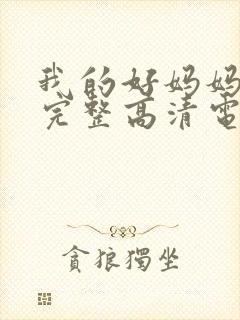 我的好妈妈
完整高清電
貪狼獨坐